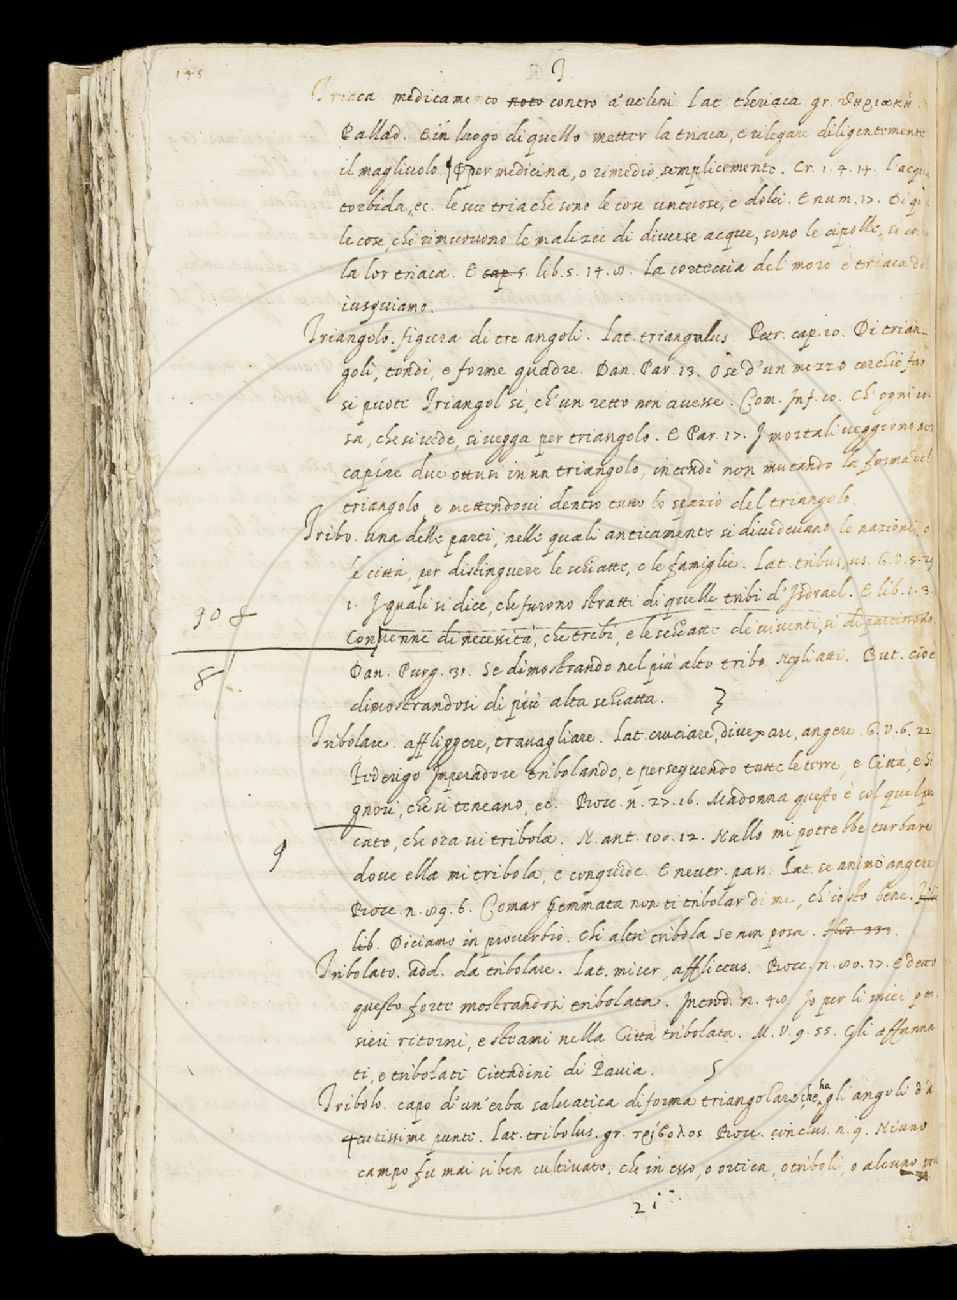 145
T
Triaca. medicamento noto contro a' veleni. Lat. theriaca gr. θηριακή.
Pallad. E in luogo di quello metter la triaca, e rilegare diligentemente
il magliuolo. ¶ per medicina, o rimedio, semplicemente. Cr. 1. 4. 14. L'acqua
torbida, ec. le sue triache sono le cose untuose, e dolci. E num. 17. Di
le cose, che rimuovono le malizie di diverse acque, sono le cipolle, si
la lor triaca. E cap. 5. lib. 5. 14. 8. La corteccia del moro è triaca del
iusquiamo.
Triangolo. figura di tre angoli. Lat. triangulus. Petr. cap. 10. Di trian-
goli, tondi, e forme quadre. Dan. Par. 13. O se d'un mezzo cerchio far
si puote Triangol sì, ch'un retto non avesse. Com. Inf. 10. Ch'ogni co-
sa, che si vede, si vegga per triangolo. E Par. 17. I mortali veggiono non
capire due ottusi in un triangolo, intendi non mutando la forma del
triangolo, e mettendovi dentro tutto lo spazio del triangolo.
Tribo. una delle parti, nelle quali anticamente si dividevano le nazioni, o
le città, per distinguere le schiatte, e le famiglie. Lat. tribus, us. G. V. 5. 29
1. I quali si dice, che furono stratti di quelle tribi d'Isdrael. E lib. 1. 3.
Convenne di necessità, che tribi, e le schiatte de' viventi, si partissono.
Dan. Purg. 31. Se dimostrando nel più alto tribo Negli atti. But. cioè
dimostrandosi di più alta schiatta.
Tribolare. affliggere, travagliare. Lat. cruciare, divexare, angere. G. V. 6. 22
Federigo Imperadore tribolando, e perseguendo tutte le terre, e Città, e Si
gnori, che si teneano, ec. Bocc. n. 27. 16. Madonna questo è sol quel pec
cato, che ora vi tribola. N. ant. 100. 12. Nullo mi potrebbe turbare
dove ella mi tribola, e conquide. E neutr. pass. Lat. se animo angere
Bocc. n. 89. 6. Comar Gemmata non ti tribolar di me, ch'io sto bene.
lib. Diciamo in proverbio. Chi altri tribola se non posa. Flos. 333.
Tribolato. add. da tribolare. Lat. miser, afflictus. Bocc. n. 80. 17. E detto
questo forte mostrandosi tribolata. Introd. n. 48. Io per li miei pen
sieri ritorni, e steami nella Città tribolata. M. V. 9. 55. Gli affanna
ti, e tribolati Cittadini di Pavia.
Tribolo. capo d'un'erba salvatica di forma triangolare, che ha gli angoli d'a
cutissime punte. Lat. tribolus. gr. τρίβολος Bocc. conclus. n. 9. Niuno
campo fu mai sì ben cultivato, che in esso, o ortica, o triboli, o alcuno pru